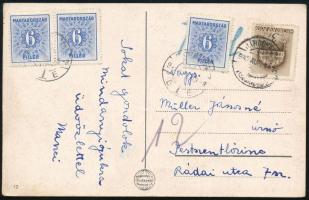 MAGYARORSZÁG
6
FILLÉR
MAGYARORSZÁG
6
FILLÉR
MAGYARORSZÁG
6
FILLÉR
Sokat gondolok
mindannyiójukra
üdvözlettel
Manci
Nagys.
Müller Jánosné
úrnő
Pestszentlőrinc
Rádai utca 7 sz.
12